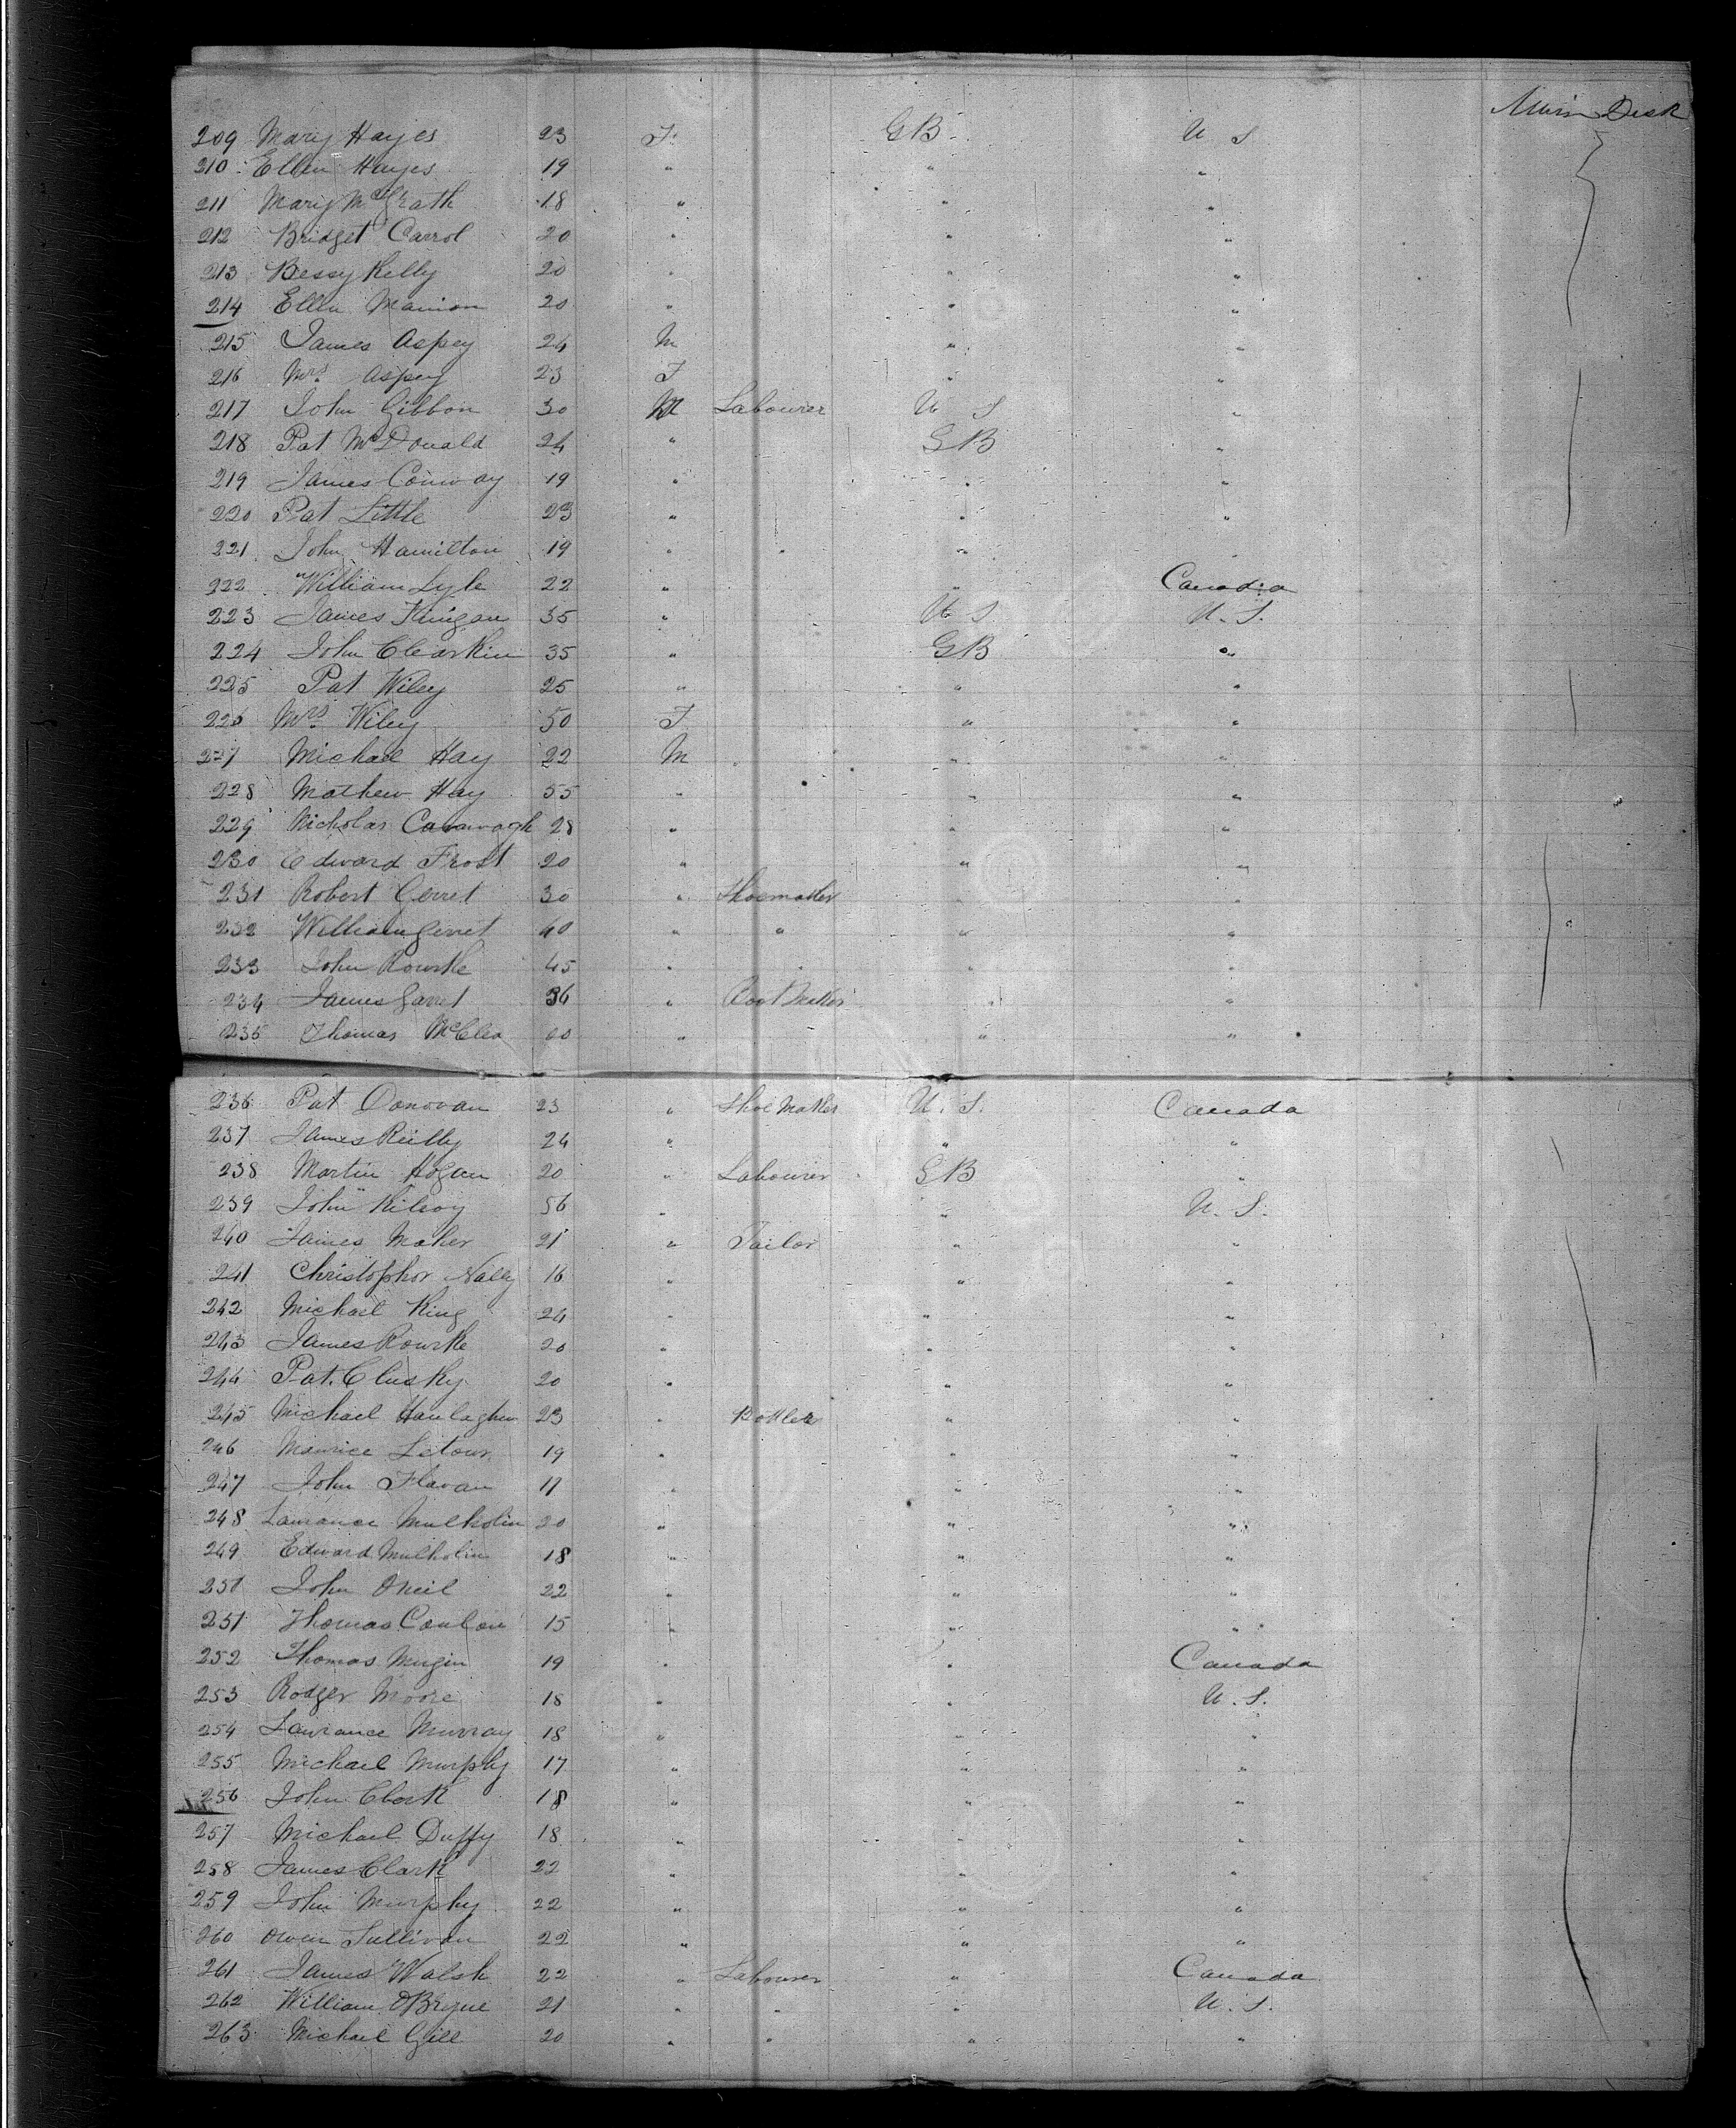 Main Deck
209 Mary Hayes 23 F. GB. U S
210 Ellen Hayes 19 " " "
211 Mary McGrath 18 " " "
212 Bridget Carrol 20 " " "
213 Bessy Kelly 20 " " "
214 Ellen Manion 20 " " "
215 James Aspey 24 M " "
216 Mrs. Aspey 23 F " "
217 John Gibbon 30 M Labourer U S "
218 Pat McDonald 24 " GB "
219 James Conway 19 " " "
220 Pat Little 23 " " "
221 John Hamilton 19 " " " "
222 William Lyle 22 " " Canada
223 James 35 " U S U. S.
224 John Clearkin 35 " GB "
225 Pat Wiley 25 " " "
226 Mrs. Wiley 50 F " "
227 Michael Hay 22 M " " "
228 Mathew Hay 55 " " "
229 Nicholas Cavanagh 28 " " "
230 Edward Frost 20 " " "
231 Robert Gerret 30 " Shoemaker " "
232 William Gerret 40 " " " "
233 John Rourke 45 " " " "
234 James Garret 36 " Boot Maker " "
235 Thomas McClea 60 " " "
236 Pat Donovan 23 " Shoe Maker U. S. Canada
237 James Reilly 24 " " "
238 Martin Hogan 20 " Labourer GB "
239 John Kilroy 56 " " U. S.
240 James Maher 21 " Tailor " "
241 Christophor Nally 16 " " "
242 Michael King 24 " " "
243 James Rourke 20 " " "
244 Pat. Clusky 20 " " "
245 Michael 23 " " "
246 Maurice 19 " " "
247 John Flavan 17 " " "
248 Lawrance Mulholin 20 " " "
249 Edward Mulholin 18 " " "
250 John Oneil 22 " " "
251 Thomas Conlon 15 " " "
252 Thomas 19 " " Canada
253 Rodger Moore 18 " " U. S.
254 Lawrance Murray 18 " " "
255 Michael Murphy 17 " " "
256 John Clark 18 " " "
257 Michael Duffy 18 " " "
258 James Clark 22 " " "
259 John Murphy 22 " " "
260 Owen Sullivan 22 " " "
261 James Walsh 22 " Labourer " Canada
262 William OBryne 21 " " " U. S.
263 Michael Gill 20 " " " "